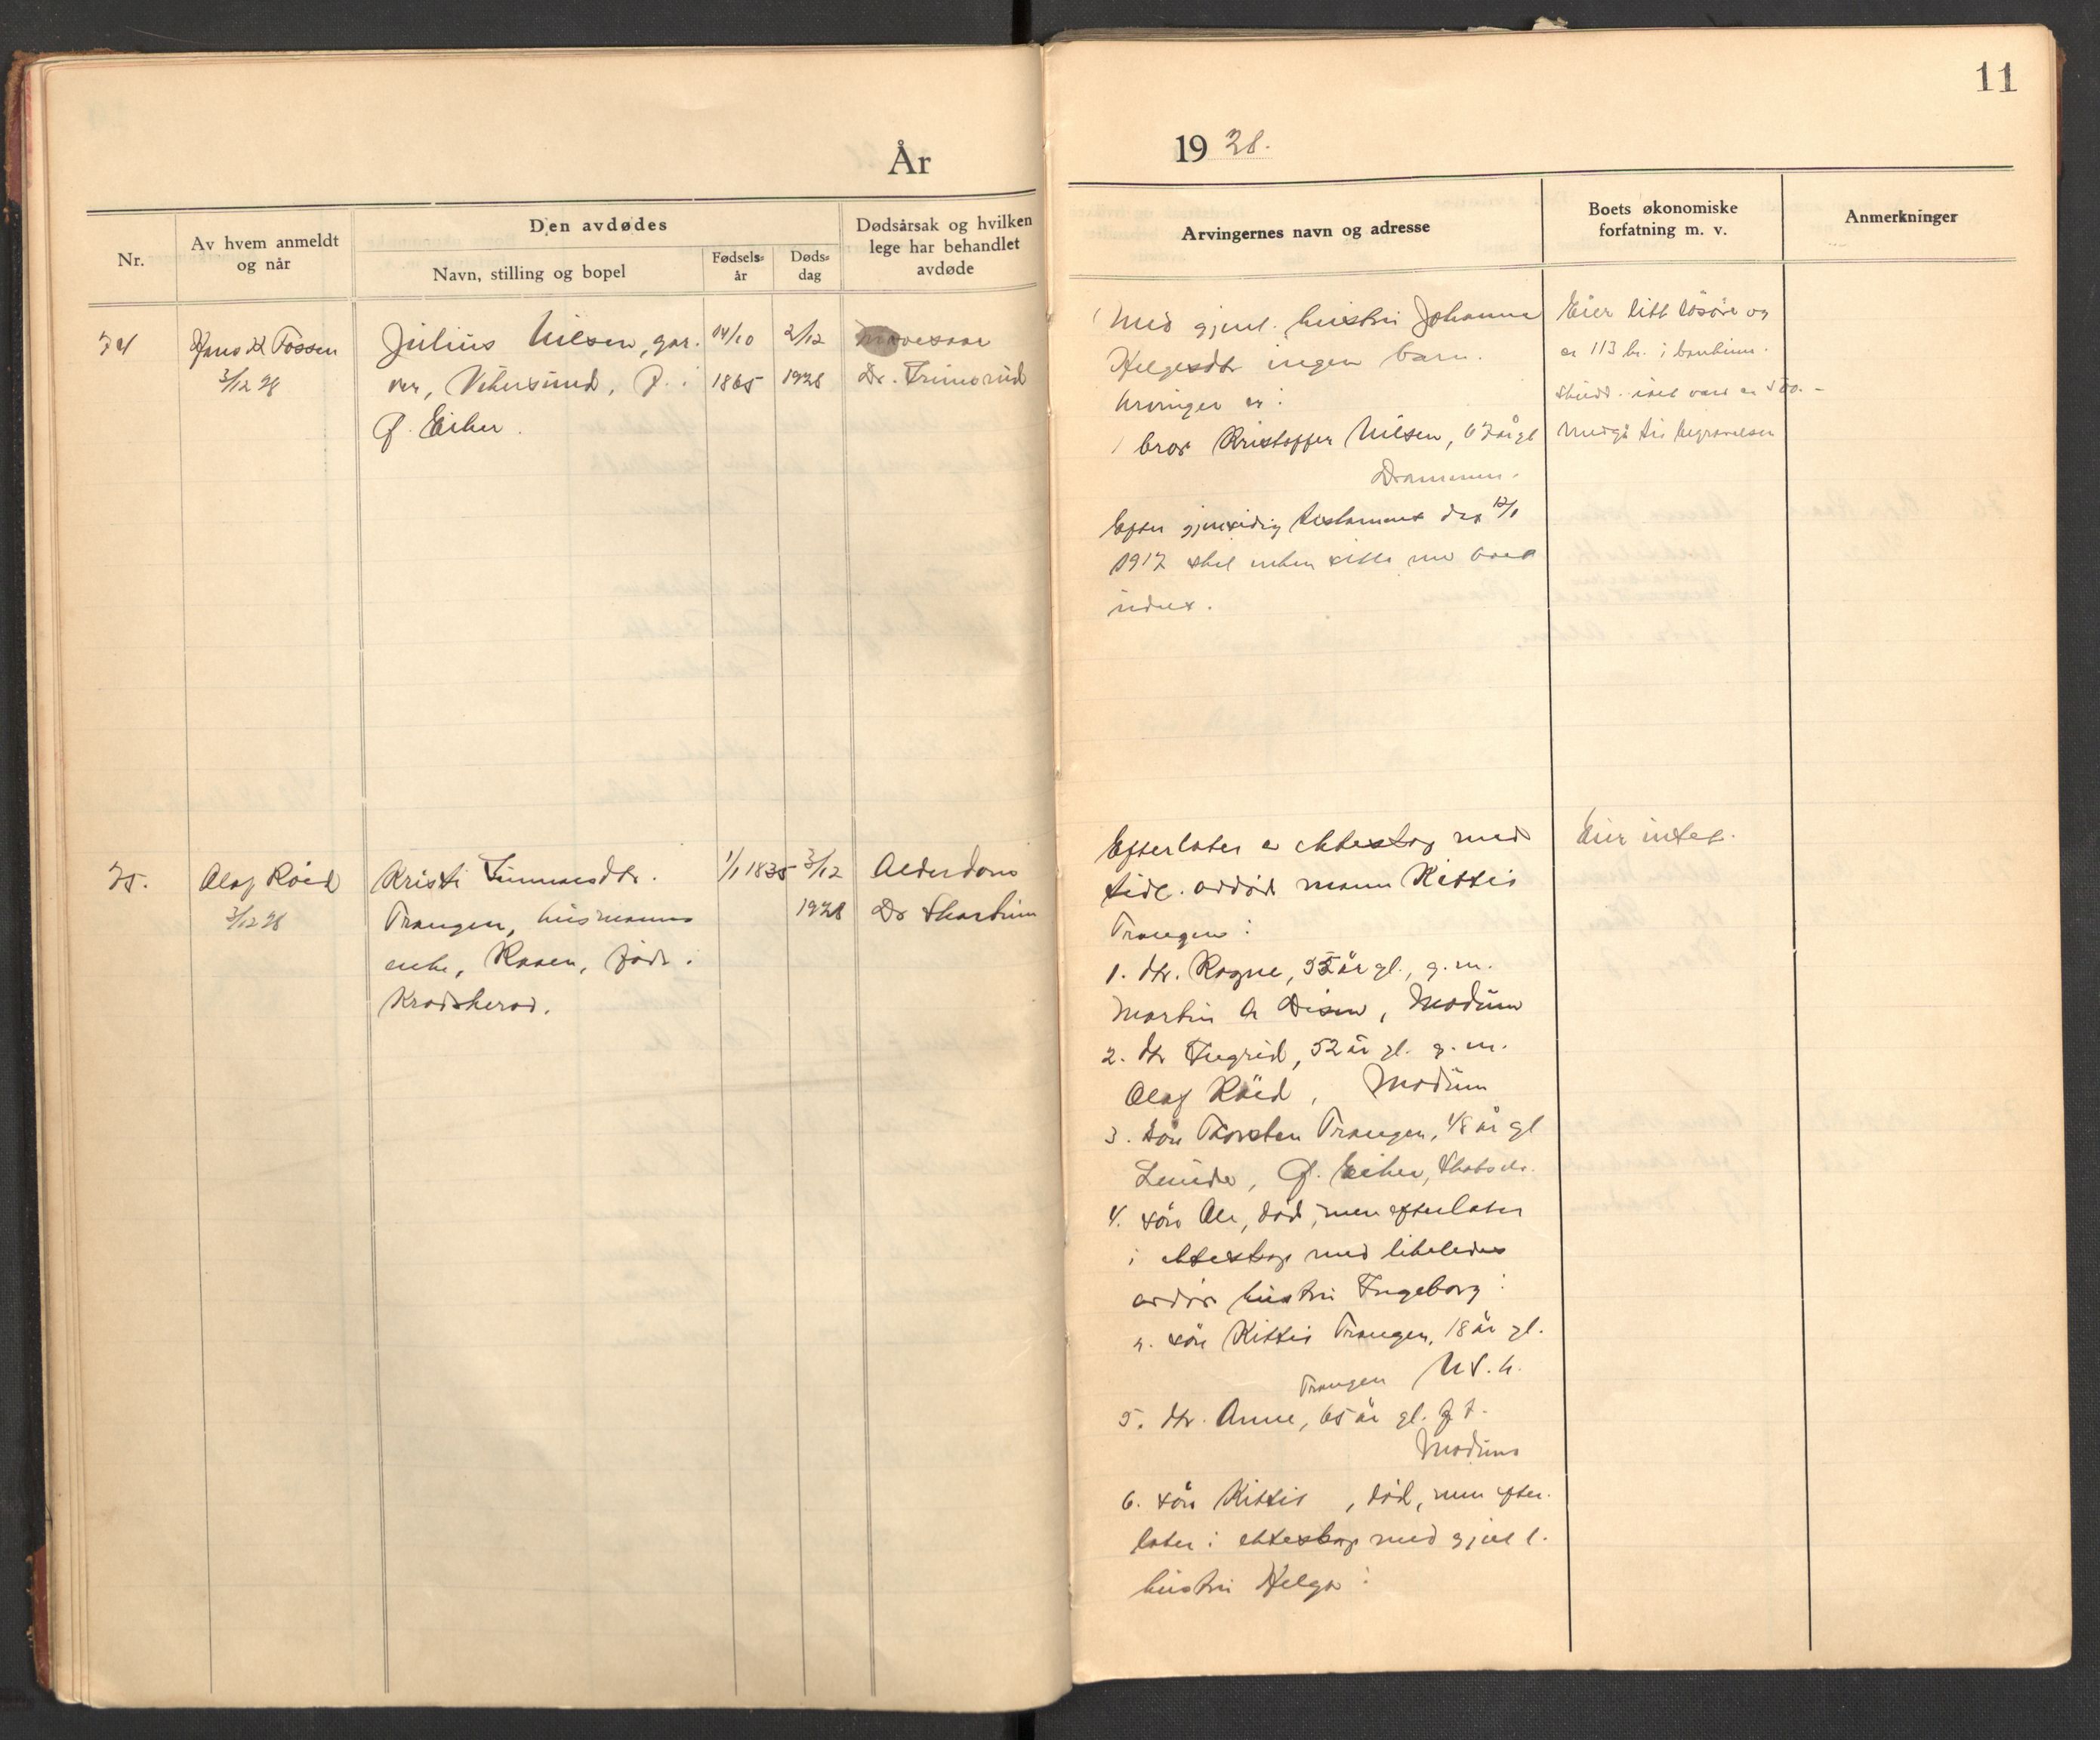 11
År
19 28.
Nr.
Av hvem anmeldt
og når
Den avdødes
Navn, stilling og bopel
Fødsels-
år
Døds-
dag
Dødsårsak og hvilken
lege har behandlet
avdøde
Arvingernes navn og adresse
Boets økonomiske
forfatning m. v.
Anmerkninger
74
Hans K Fossen
3/12 28
Julius Nilsen, gar.
ver, Vikersund, f. i
Ø. Eiker.
14/10
1865
2/12
1928
Mavesaar
Dr.
Med gjenl. hustru Johanne
Helgesdtr ingen barn.
Arvinger er:
1 bror Kristoffer Nilsen, 67 år gl
Drammen.
Efter gjensidig testament dag 12/1
1917 skal enken sitte i
uskiftet bo
Eier litt løsøre og
er 113 kr. i bankinn-
skudd
Medgå til begravelsen
75.
Olaf Røed
3/12 28
Kristi Gunnarsdtr.
Trangen, husmanns
enke, Raaen, født i
Krødsherad.
1/1 1835
3/12
1928
Alderdom
Dr Skartum
Efterlater i ektesk␣ap med
tidl. avdød mann Kittil
Trangen:
1. dtr. Ragne, 55 år gl., g. m.
Martin A Disen, Modum
2. dtr Ingrid, 52 år gl. g. m.
Olaf Røed, Modum
3. søn Thorsten Trangen, 48 år gl
Lunde, Ø. Eiker, Skotselv.
4. søn Ole, død, men efterlater
i ekteskap med likeledes
avdød hustru Ingeborg:
a. søn Kittil Trangen, 18 år gl.
Trangen
5. dtr. Anne, 65 år gl.
Modum
6. søn Kittil, død, men efter-
later i ekteskap med gjenl.
hustru Helga:
Eier intet.